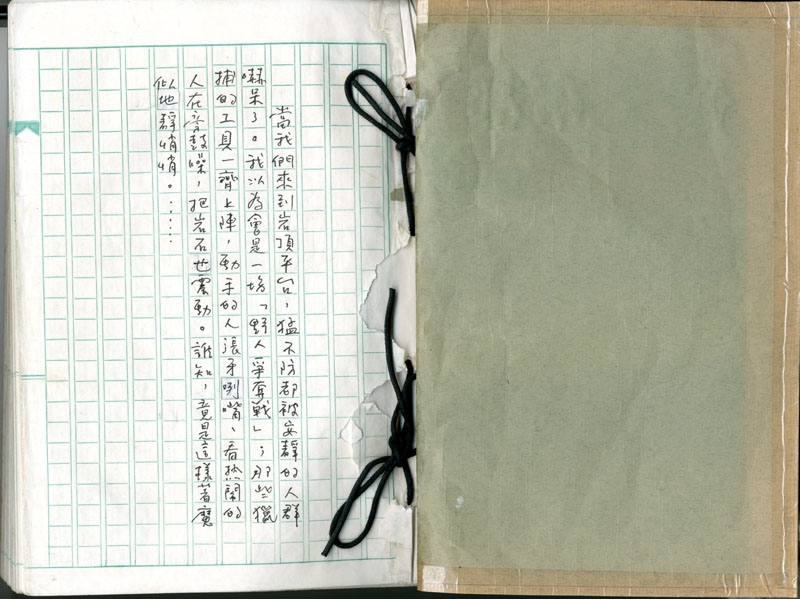 當我們來到岩頂平台，猛不防都被安靜的人群
嚇呆了。我以為會是一場「野人爭奪戰」；那些獵
捕的工具一齊上陣，動手的人張牙咧嘴、看熱鬧的
人在旁鼓噪，把岩石也震動。誰知，竟是這樣著魔
似地靜悄悄。……